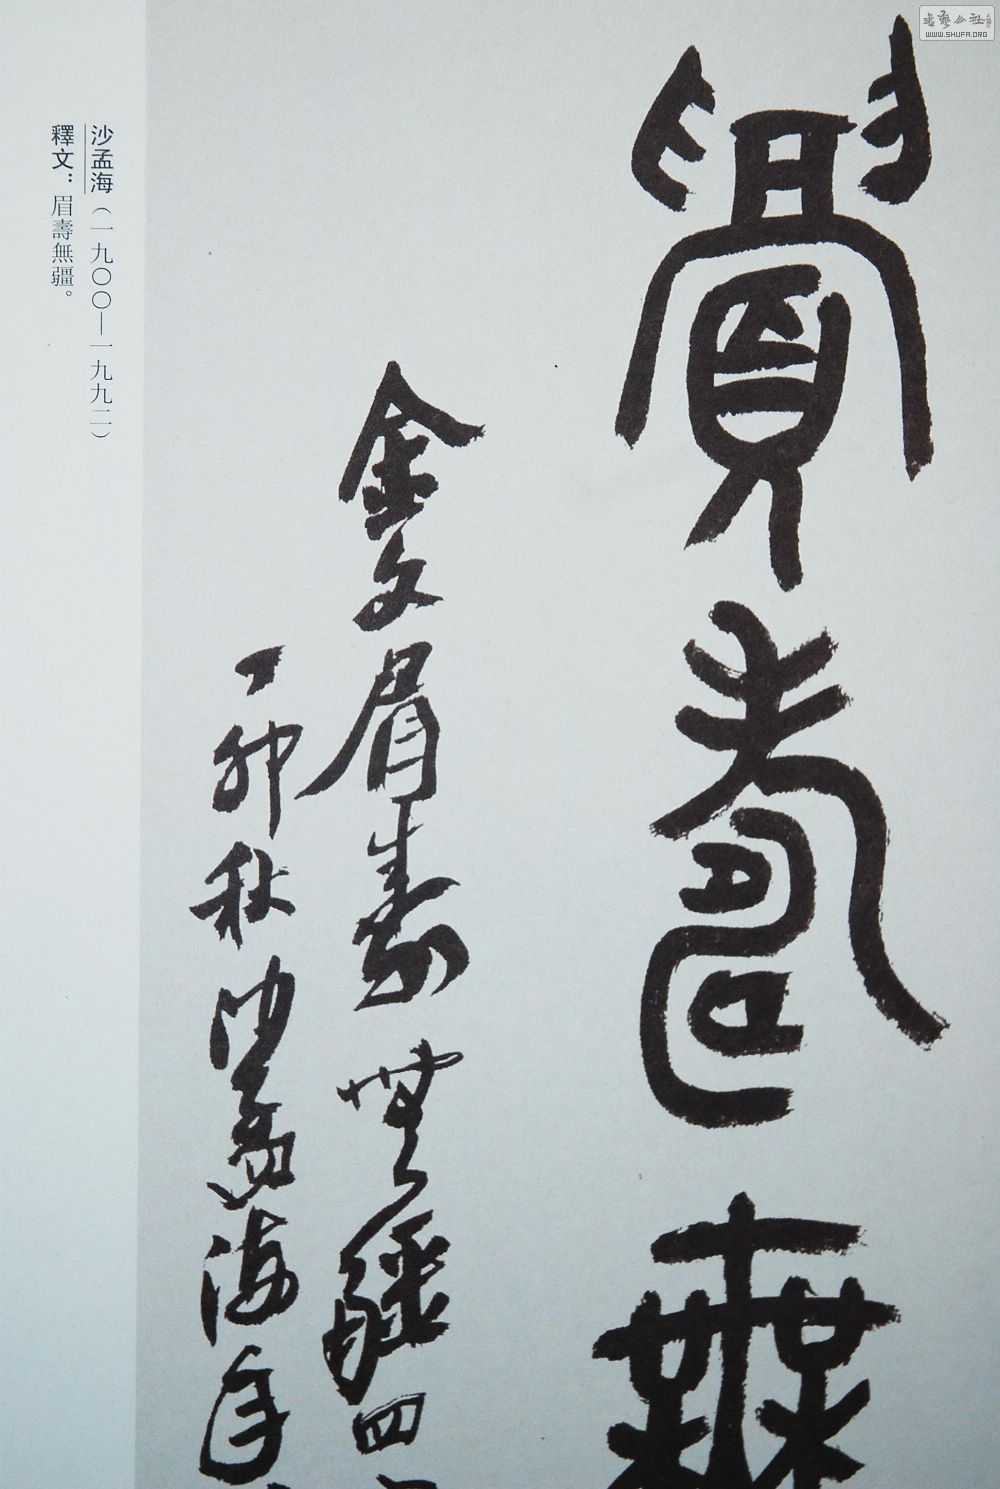 書藝公社
WWW.SHUFA.ORG
眉壽無
金文眉壽無疆四
丁卯秋沙孟海年
沙孟海（一九〇〇—一九九二）
釋文：眉壽無疆。